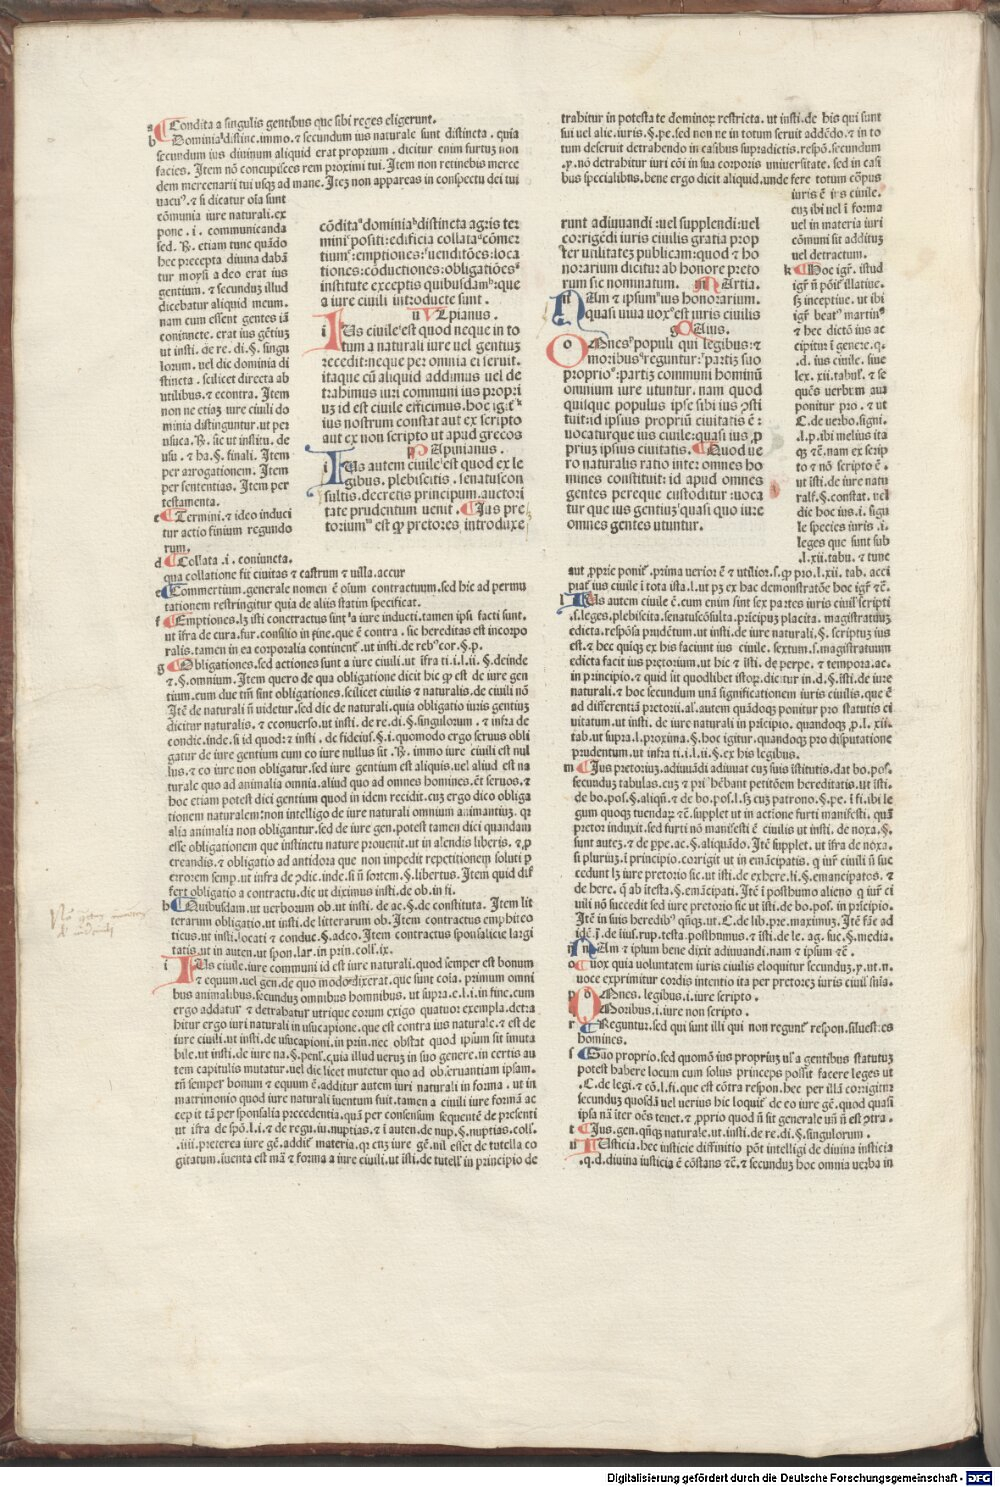 a Condita a singulis gentibus que sibi reges eligerunt.
b Dominia distinc. immo. ⁊ secundum ius naturale sunt distincta. quia
secundum ius diuinum aliquid erat proprium. dicitur enim furtum non
facies. Item nō concupisces rem proximi tui. Item non retinebis merce
dem mercenarii tui usqꝫ ad mane. Iteꝫ non appareas in conspectu dei tui
uacuꝰ. ⁊ si dicatur oīa sunt
cōmunia iure naturali. ex
pone .i. communicanda
sed. R̄. etiam tunc quādo
hec precepta diuina dabā
tur moysi a deo erat ius
gentium. ⁊ secundū illud
dicebatur aliquid meum.
nam cum essent gentes iā
conuincte. erat ius gētiuꝫ
ut insti. de re. di. §. singu
lorum. uel dic dominia di
stincta. scilicet directa ab
utilibus. ⁊ econtra. Item
non ne etiaꝫ iure ciuili do
minia distinguntur. ut per
usuca. R̄. sic ut institu. de
usu. ⁊ ha. §. finali. Item
per arrogationem. Item
per sententias. Item per
testamenta.
c Termini. ⁊ ideo induci
tur actio finium regundo
rum.
d Collata .i. coniuncta.
qua collatione fit ciuitas ⁊ castrum ⁊ uilla. accur
e Commertium. generale nomen ē oīum contractuum. sed hic ad permu
tationem restringitur quia de aliis statim specificat.
f Emptiones. lꝫ isti conctractus sint a iure inducti. tamen ipsi facti sunt.
ut īfra de cura. fur. consilio in fine. que ē contra. sic hereditas est incorpo
ralis. tamen in ea corporalia continent. ut insti. de rebꝰ cor. §. p.
g Obligationes. sed actiones sunt a iure ciuili. ut īfra ti. i. l. ii. §. deinde
⁊ .§. omnium. Item quero de qua obligatione dicit hic ꝙ est de iure gen
tium. cum due tm̄ sint obligationes. scilicet ciuilis ⁊ naturalis. de ciuili nō
Itē de naturali n̄ uidetur. sed dic de naturali. quia obligatio iuris gentiuꝫ
dicitur naturalis. ⁊ econuerso. ut insti. de re. di. §. singulorum. ⁊ infra de
condic. inde. si id quod: ⁊ insti. de fideius. §. i. quomodo ergo seruus obli
gatur de iure gentium cum eo iure nullus sit. R̄. immo iure ciuili est nul
lus. ⁊ eo iure non obligatur. sed iure gentium est aliquis. uel aliud est na
turale quo ad animalia omnia. aliud quo ad omnes homines. ēt seruos. ⁊
hoc etiam potest dici gentium quod in idem recidit. cuꝫ ergo dico obliga
tionem naturalem: non intelligo de iure naturali omnium animantiuꝫ. qꝛ
alia animalia non obligantur. sed de iure gen. potest tamen dici quandam
esse obligationem que instinctu nature prouenit. ut in alendis liberis. ⁊ ꝓ
creandis. ⁊ obligatio ad antidora que non impedit repetitionem soluti ꝑ
errorem semp. ut infra de ꝯdic. inde. si n̄ sortem. §. libertus. Item quid dif
fert obligatio a contractu. dic ut diximus insti. de ob. in fi.
h Quibusdam. ut uerborum ob. ut insti. de ac. §. de constituta. Item lit
terarum obligatio. ut insti. de litterarum ob. Item contractus emphiteo
ticus. ut insti. locati ⁊ conduc. §. adeo. Item contractus sponsalicie largi
tatis. ut in auten. ut spon. lar. in prin. coll. ix.
i Ius ciuile. iure communi id est iure naturali. quod semper est bonum
⁊ equum. uel gen. de quo modo dixerat. que sunt cola. primum omni
bus animalibus. secunduꝫ omnibus hominibus. ut supra. e. l. i. in fine. cum
ergo addatur ⁊ detrahatur utrique eorum exigo quatuor exempla. detra
hitur ergo iuri naturali in usucapione. que est contra ius naturale. ⁊ est de
iure ciuili. ut insti. de usucapioni. in prin. nec obstat quod ipsum sit imuta
bile. ut insti. de iure na. §. penl. quia illud ueruꝫ in suo genere. in certis au
tem capitulis mutatur. uel dic licet mutetur quo ad obseruantiam ipsam.
tn̄ semper bonum ⁊ equum ē. additur autem iuri naturali in forma. ut in
matrimonio quod iure naturali iuentum fuit. tamen a ciuili iure formā ac
cepit tā per sponsalia precedentia. quā per consensum sequentē de presenti
ut īfra de spō. l. i. ⁊ de regu. iu. nuptias. ⁊ ī auten. de nup. §. nuptias. coll.
.iiii. preterea iure gē. addit̄ materia. qꝛ cuꝫ iure gē. nil esset de tutella co
gitatum. iuenta est mā ⁊ forma a iure ciuili. ut īsti. de tutell in principio de
cōdita dominia distincta agris ter
mini positi: edificia collata cōmer
tium: emptiones: uenditōes: loca
tiones: cōductiones: obligatiōes
institute exceptis quibusdam: que
a iure ciuili introducte sunt.
Ulpianus.
i Ius ciuile est quod neque in to
tum a naturali iure uel gentiuꝫ
recedit: neque per omnia ei seruit.
itaque cū aliquid addimus uel de
trahimus iuri communi ius propri
uꝫ id est ciuile efficimus. hoc igr̄
ius nostrum constat aut ex scripto
aut ex non scripto ut apud grecos
Papinianus.
i Ius autem ciuile est quod ex le
gibus. plebiscitis. senatuscon
sultis. decretis principum. auctori
tate prudentum uenit. Ius pre
torium est ꝙ pretores introduxe
trahitur in potestate dominoꝝ restricta. ut insti. de his qui sunt
sui uel alie. iuris. §. pe. sed non ne in totum seruit addēdo. ⁊ in to
tum deseruit detrahendo in casibus supradictis. respō. secundum
.p. nō detrahitur iuri cōi in sua corporis uniuersitate. sed in casi
bus specialibus. bene ergo dicit aliquid. unde fere totum cōpus
iuris ē ius ciuile.
cuꝫ ibi uel ī forma
uel in materia iuri
cōmuni sit additum
uel detractum.
k Hoc igr̄. istud
igr̄ n̄ pōit̄ illatiue.
sꝫ inceptiue. ut ibi
igr̄ beatꝰ martinꝰ
⁊ hec dictō ius ac
cipitur ī genere. q.
.d. ius ciuile. siue
lex. xii. tabul. ⁊ se
quēs uerbum aut
ponitur pro. ⁊ ut
C. de uerbo. signi.
.l. p. ibi melius ita
qꝫ ⁊c̄. nam ex scrip
to ⁊ nō scripto ē.
ut īsti. de iure natu
rali. §. constat. uel
dic hoc ius. i. sigu
le species iuris. i.
leges que sunt sub
.l. xii. tabu. ⁊ tunc
aut ꝓprie ponit̄. prima uerior ē ⁊ utilior. s. ꝙ pro .l. xii. tab. acci
piat̄ ius ciuile ī tota ista. l. ut pꝫ ex hac demonstratōe hoc igr̄ ⁊c̄.
l Ius autem ciuile ē. cum enim sint sex partes iuris ciuil scripti
.s. leges. plebiscita. senatuscōsulta. prīcipuꝫ placita. magistratuuꝫ
edicta. respōsa prudētum. ut insti. de iure naturali. §. scriptuꝫ ius
est. ⁊ hec quīqꝫ ex his faciunt ius ciuile. sextum. s. magistratuum
edicta facit ius pretorium. ut hic ⁊ īsti. de perpe. ⁊ tempora. ac.
in principio. ⁊ quid sit quodlibet istoꝝ. dicitur in. d. §. īsti. de iure
naturali. ⁊ hoc secundum unā significationem iuris ciuilis. que ē
ad differentiā pretorii. al. autem quādoqꝫ ponitur pro statutis ci
uitatum. ut insti. de iure naturali in prīcipio. quandoqꝫ ꝓ. l. xii.
tab. ut supra. l. proxima. §. hoc igitur. quandoqꝫ pro disputatione
prudentum. ut infra ti. i. l. ii. §. ex his legibus.
m Ius pretoriuꝫ. adiuuādi adiuuat cuꝫ suis īstitutis. dat bo. pos.
secunduꝫ tabulas. cuꝫ ⁊ priꝰ hēbant petitōem hereditatis. ut īsti.
de bo. pos. §. aliqn̄. ⁊ de bo. pos. l. sꝫ cuꝫ patrono. §. pe. ī fi. ibi le
gum quoqꝫ tuendaꝝ ⁊c̄. supplet ut in actione furti manifesti. quā
pretor induxit. sed furti nō manifesti ē ciuilis ut insti. de noxa. §.
sunt auteꝫ. ⁊ de ꝑpe. ac. §. aliquādo. Itē supplet. ut īfra de noxa.
si pluriuꝫ. ī principio. corrigit ut in emācipatis. q iur̄ ciuili n̄ suc
cedunt lꝫ iure pretorio sic. ut īsti. de exhere. li. §. emancipatos. ⁊
de here. q̄ ab ītesta. §. emācipati. Itē ī posthumo alieno q iur̄ ci
uili nō succedit sed iure pretorio sic ut īsti. de bo. pos. in prīcipio.
Itē in suis heredibꝰ qn̄qꝫ. ut. C. de lib. pre. maximuꝫ. Itē fāc ad
idē. ī. de iniu. rup. testa. posthumus. ⁊ īsti. de le. ag. suc. §. media.
n Nam ⁊ ipsum bene dixit adiuuandi. nam ⁊ ipsum ⁊c̄.
o Uox quia uoluntatem iuris ciuilis eloquitur secunduꝫ. p. ut. n.
uoce exprimitur cordis intentio ita per pretoreꝫ iuris ciuil suīa.
p Omnes. legibus. i. iure scripto.
q Moribus. i. iure non scripto.
r Reguntur. sed qui sunt illi qui non regunt̄ respon. siluestres
homines.
s Suo proprio. sed quomō ius propriuꝫ ul a gentibus statutuꝫ
potest habere locum cum solus princeps possit facere leges ut
.C. de legi. ⁊ cō. l. fi. que est cōtra respon. hec per illā corrigitur
secunduꝫ quosdā uel uerius hic loquit̄ de eo iure gē. quod quasi
ipsa nā īter oēs tenet. ⁊ ꝓprio quod n̄ sit generale un̄ n̄ est ꝯtra.
t Ius. gen. qn̄qꝫ naturale. ut insti. de re. di. §. singulorum.
u Iusticia. hec iusticie diffinitio pōt intelligi de diuina iusticia
.q. d. diuina iusticia ē cōstans ⁊c̄. ⁊ secunduꝫ hoc omnia uerba in
runt adiuuandi: uel supplendi: uel
corrigēdi iuris ciuilis gratia prop
ter utilitateꝫ publicam: quod ⁊ ho
norarium dicitur ab honore preto
rum sic nominatum. Martia.
n Nam ⁊ ipsum ius honorarium.
quasi uiua uox est iuris ciuilis
Gaius.
o Omnes populi qui legibus: ⁊
moribus reguntur: partiꝫ suo
proprio: partiꝫ communi hominū
omnium iure utuntur. nam quod
quisque populus ipse sibi ius ꝯsti
tuit: id ipsius propriū ciuitatis ē:
uocaturque ius ciuile: quasi ius ꝓ
priuꝫ ipsius ciuitatis. Quod ue
ro naturalis ratio inter omnes ho
mines constituit: id apud omnes
gentes pereque custoditur: uoca
tur que ius gentiuꝫ quasi quo iure
omnes gentes utuntur.
Digitalisierung gefördert durch die Deutsche Forschungsgemeinschaft - DFG